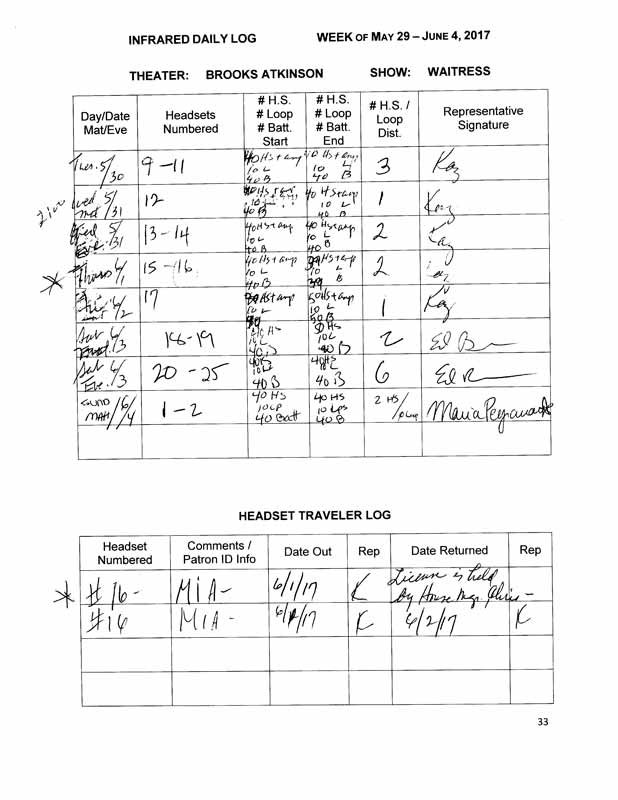 INFRARED DAILY LOG WEEK OF MAY 29 – JUNE 4, 2017
THEATER: BROOKS ATKINSON SHOW: WAITRESS
Day/Date Mat/Eve Headsets Numbered # H.S. # Loop # Batt. Start # H.S. # Loop # Batt. End # H.S. / Loop Dist. Representative Signature
Tues. 5/30 9-11 40 HS + amp 10 L 40 B 40 HS + amp 10 L 40 B 3 Kaz
Wed 5/31 mat 12 40 B 40 HS + amp 10 L 40 B 1 Kaz
Wed 5/31 Eve 13-14 40 HS + amp 10 L 40 B 40 HS + amp 10 L 40 B 2 Kaz
* Thurs 6/1 15-16 40 HS + amp 10 L 40 B 39 HS + amp 10 L 39 B 2 Kaz
Fri 6/2 17 HS + amp 10 L 50 HS + amp 10 L 50 B 1 Kaz
Sat 6/3 18-19 HS 10 L 40 B HS 10 L 40 B 2 Ed
Sat 6/3 Eve. 20-25 40 HS 10 L 40 B 40 HS 10 L 40 B 6 Ed
SUND MAT 6/4 1-2 40 HS 10 LP 40 Batt 40 HS 10 Lps 40 B 2 HS/ Maria
HEADSET TRAVELER LOG
Headset Numbered Comments / Patron ID Info Date Out Rep Date Returned Rep
* #16- MIA- 6/1/17 K License is held by House Mgr. Chris-
#16 MIA- 6/1/17 K 6/2/17 K
33